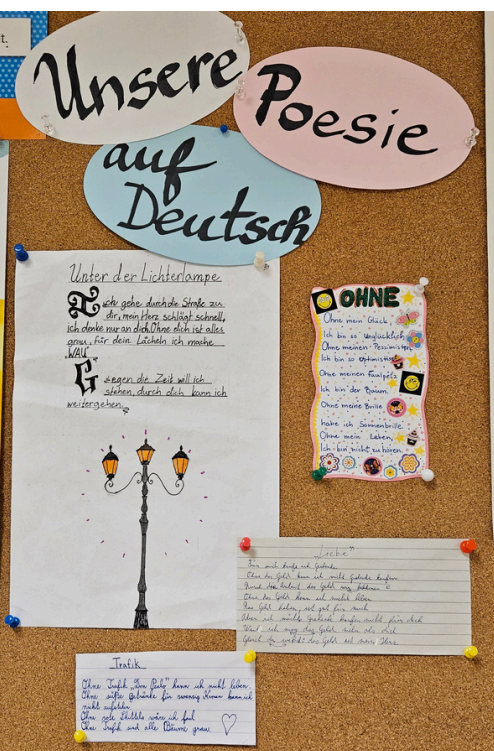 t.
Unsere
Poesie
auf
Deutsch
Unter der Lichterlampe
Ich gehe durch die Straße zu
dir, mein Herz schlägt schnell,
ich denke nur an dich. Ohne dich ist alles
grau, für dein Lächeln ich mache
WAU
Gegen die Zeit will ich
stehen, durch dich kann ich
weitergehen.
OHNE
Ohne mein Glück,
Ich bin so unglücklich
Ohne meinen Pessimisten
Ich bin so optimistisch
Ohne meinen Faulpelz
Ich bin der Baum.
Ohne meine Brille
habe ich Sonnenbrille.
Ohne mein Leben,
Ich bin nicht zu hören.
"Liebe"
Ohne das Geld kann ich nicht Geschenke kaufen
Ohne das Geld kann ich nicht leben
Das Geld haben, ist gut für mich
Aber ich möchte Geschenk kaufen nicht für dich
Weil ich mag das Geld mehr als dich
Trafik
Ohne Trafik „Don Pealo" kann ich nicht leben.
Ohne süße Getränke für zwanzig Kronen kann ich
nicht aufstehen
Ohne rote Skittles wäre ich faul
Ohne Trafik sind alle Bäume grau.